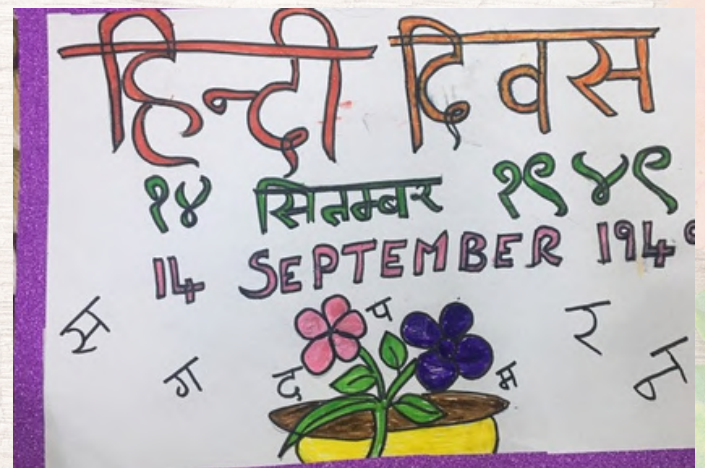 हिन्दी दिवस
१४ सितम्बर १९४९
14 SEPTEMBER 194
स ग द प म र न